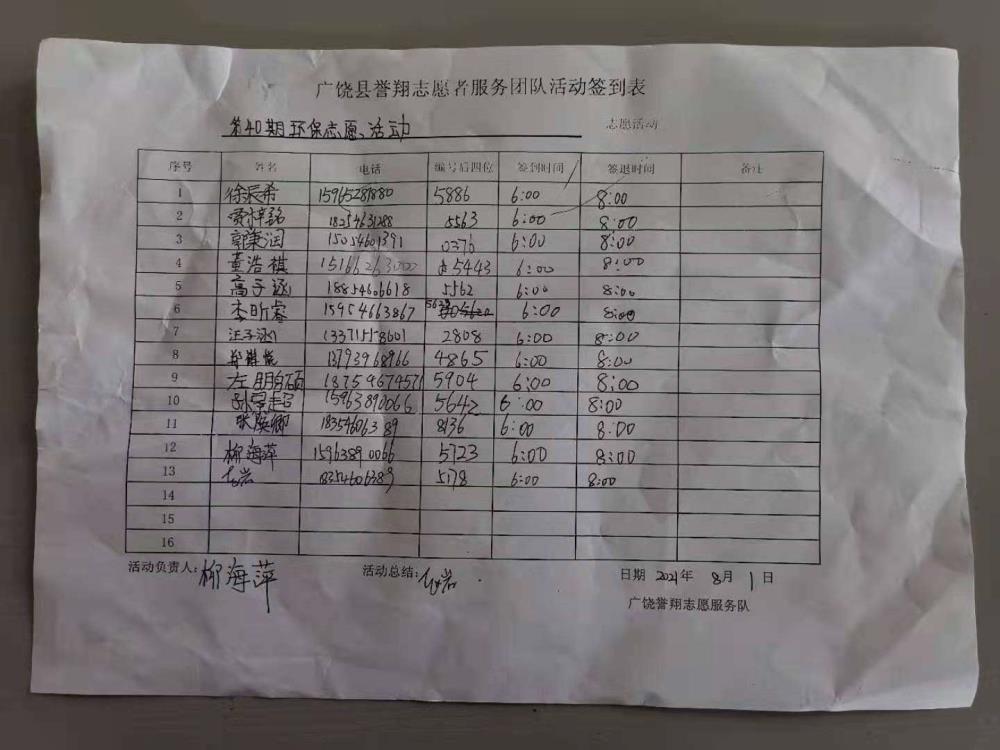 广饶县誉翔志愿者服务团队活动签到表
第40期环保志愿、活动 志愿活动
序号 姓名 电话 编号后四位 签到时间 签退时间 备注
1 徐辰希 15965281880 5886 6:00 8:00
2 18254631288 5563 6:00 8:00
3 15054601391 0376 6:00 8:00
4 董浩祺 15166263000 5443 6:00 8:00
5 高子涵 18854606618 5562 6:00 8:00
6 李昕睿 15954663867 6:00 8:00
7 汪子涵 13371558601 2808 6:00 8:00
8 13793968966 4865 6:00 8:00
9 左明硕 18759674571 5904 6:00 8:00
10 15963890066 5642 6:00 8:00
11 18354606389 8136 6:00 8:00
12 柳海萍 15963890066 5723 6:00 8:00
13 18354606389 5178 6:00 8:00
14
15
16
活动负责人:柳海萍 活动总结: 日期 2021年 8月 1日
广饶誉翔志愿服务队